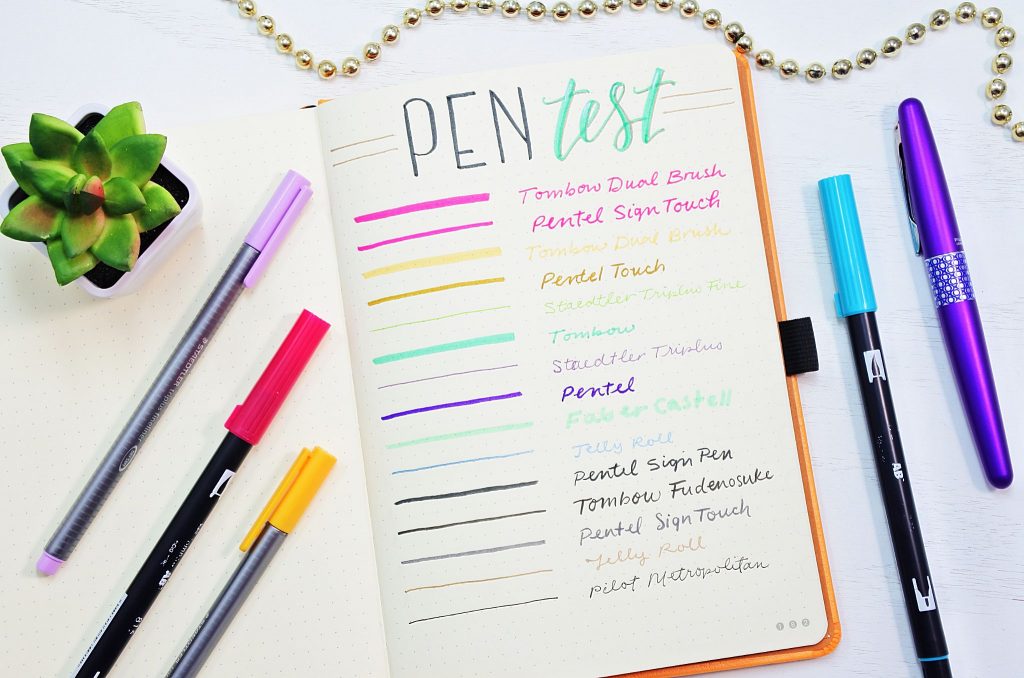 PEN test
Tombow Dual Brush
Pentel Sign Touch
Tombow Dual Brush
Pentel Touch
Staedtler Triplus Fine
Tombow
Staedtler Triplus
Pentel
Faber Castell
Jelly Roll
Pentel Sign Pen
Tombow Fudenosuke
Pentel Sign Touch
Jelly Roll
Pilot Metropolitan
182
STAEDTLER triplus fineliner
AB
AB